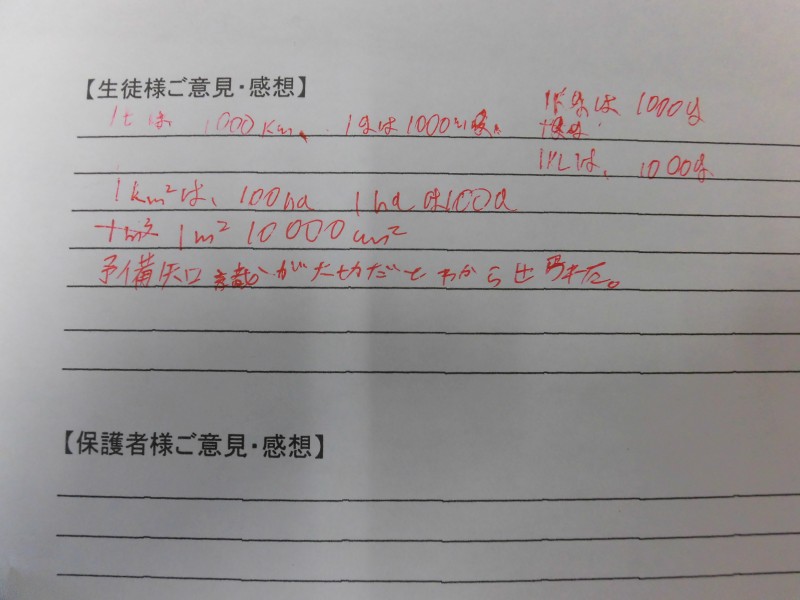 【生徒様ご意見・感想】
1tは 1000km、 1gは1000
1000g
1Lは、1000g
1km²は、100ha 1haは100a
1m² 10000cm²
予備知識が大切だとわから出来た。
【保護者様ご意見・感想】